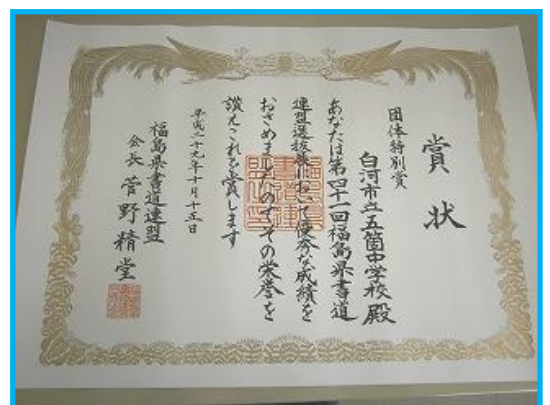 賞状
団体特別賞
白河市立五箇中学校殿
あなたは第四十一回福島県書道
連盟選抜展において優秀な成績を
おさめましたのでその栄誉を
讃えこれを賞します
平成二十九年十月十五日
福島県書道連盟
会長 菅野精堂